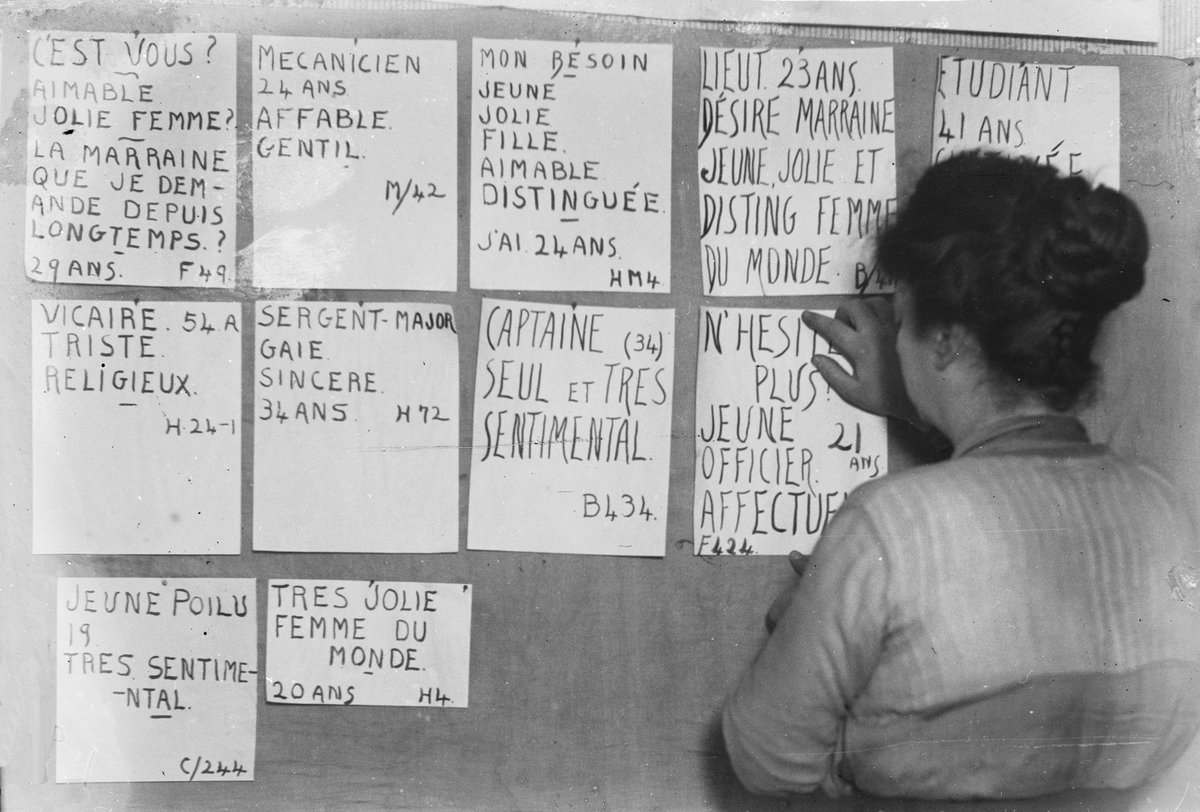 C'EST VOUS?
AIMABLE
JOLIE FEMME?
LA MARRAINE
QUE JE DEM-
ANDE DEPUIS
LONGTEMPS.?
29 ANS. F 49.
MECANICIEN
24 ANS
AFFABLE.
GENTIL.
M/42
MON BÉSOIN
JEUNE
JOLIE
FILLE.
AIMABLE
DISTINGUÉE.
J'AI. 24 ANS.
HM4
LIEUT. 23 ANS.
DÉSIRE MARRAINE
JEUNE, JOLIE ET
DISTING FEMME
DU MONDE.
ETUDIANT
41 ANS.
VICAIRE. 54 A
TRISTE.
RELIGIEUX.
H.24-1
SERGENT-MAJOR
GAIE.
SINCERE.
34 ANS H 72
CAPTAINE (34)
SEUL ET TRES
SENTIMENTAL.
B434.
PLUS!
JEUNE 21
OFFICIER. ANS
F424.
JEUNE POILU
19
TRES. SENTIME-
-NTAL.
C/244
TRES JOLIE
FEMME DU
MONDE.
20 ANS H4.